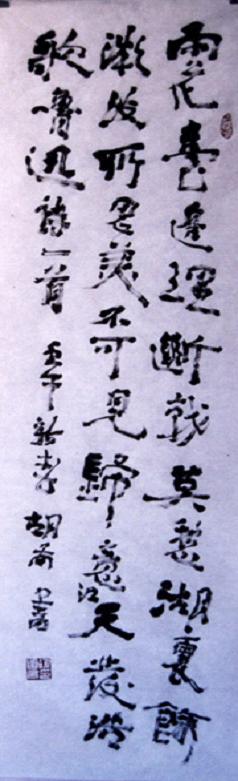 雨花臺邊埋斷戟莫愁湖裏餘
微波所思美人不可見歸憶江天發浩
歌魯迅詩一首 壬午新春 胡